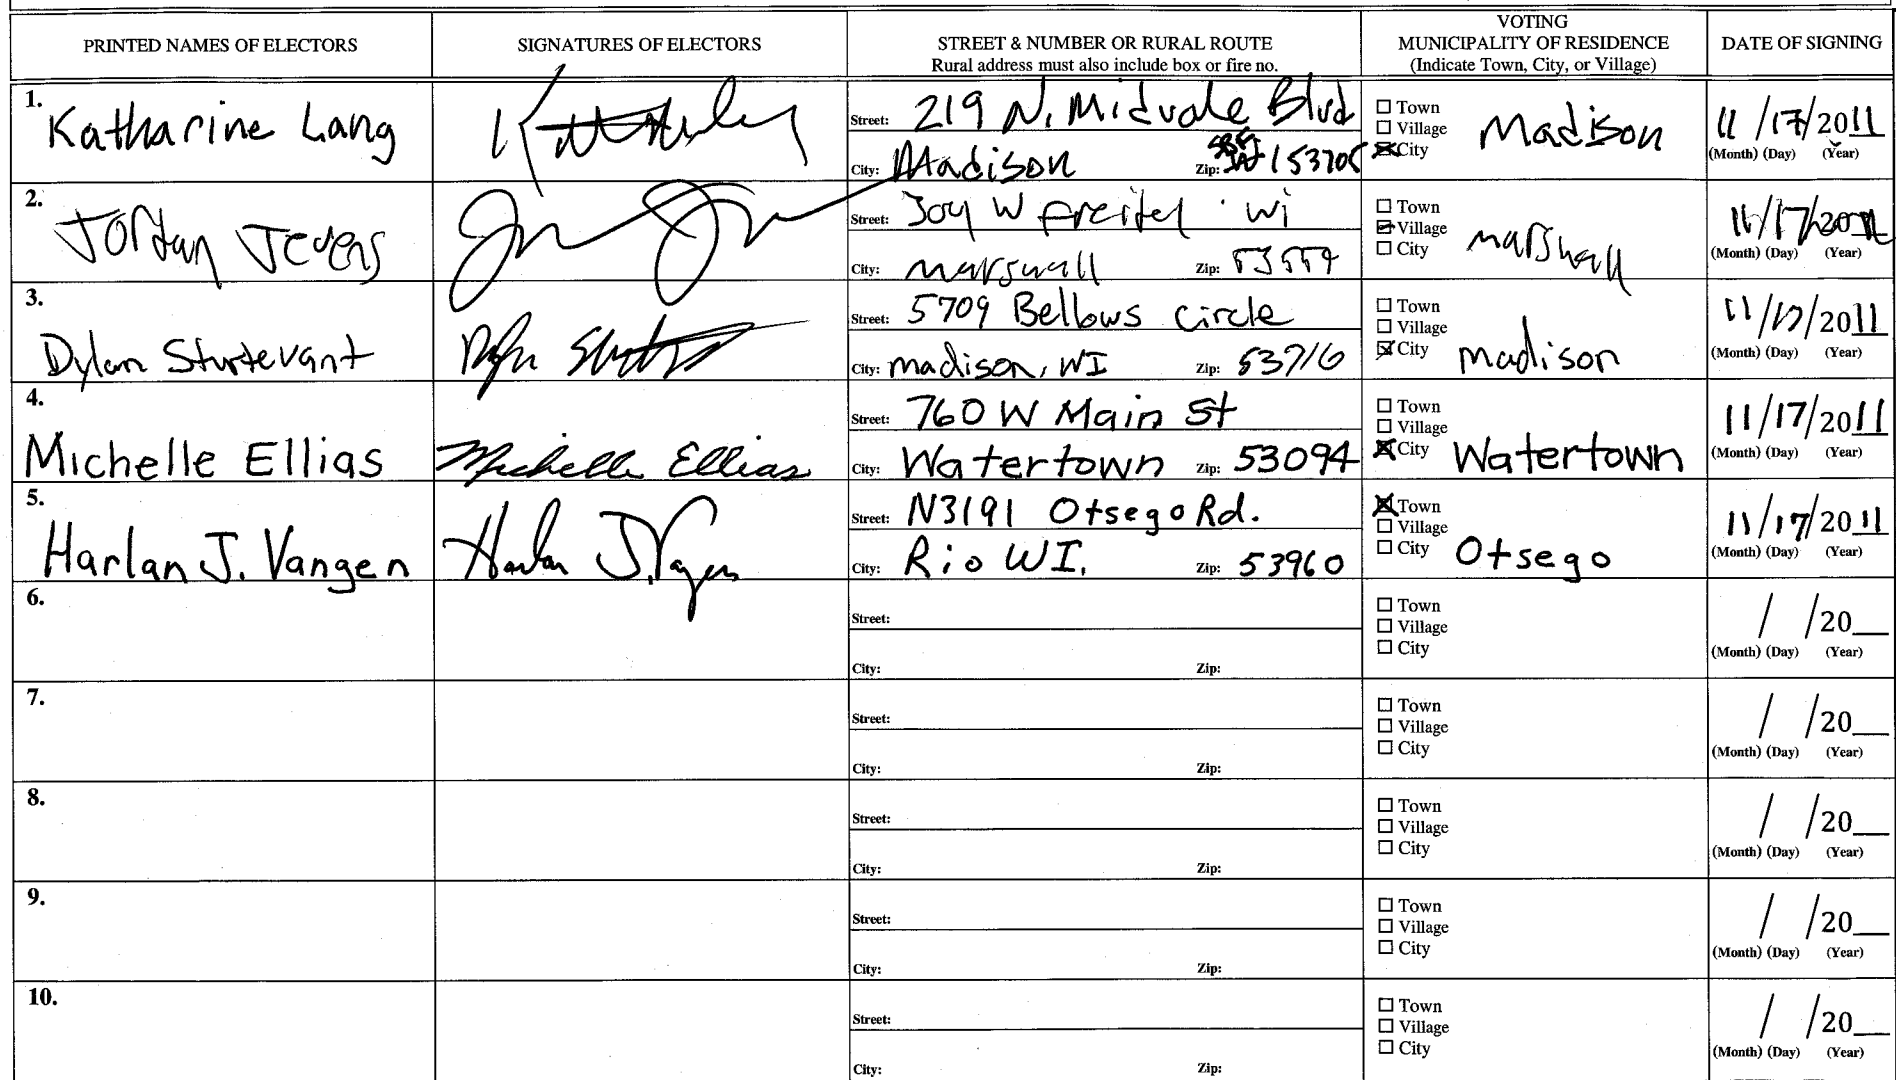 PRINTED NAMES OF ELECTORS
SIGNATURES OF ELECTORS
STREET & NUMBER OR RURAL ROUTE
Rural address must also include box or fire no.
VOTING
MUNICIPALITY OF RESIDENCE
(Indicate Town, City, or Village)
DATE OF SIGNING
1.
Katharine Lang
Street: 219 N. Midvale Blvd
City: Madison Zip: 53705
Town
Village
City
Madison
11/17/2011
(Month) (Day) (Year)
2.
Jordan Jevens
Street: W Freitel Wi
City: marshall Zip: 53559
Town
Village
City
marshall
11/17/2011
(Month) (Day) (Year)
3.
Dylan Sturtevant
Street: 5709 Bellows circle
City: madison, WI Zip: 53716
Town
Village
City
madison
11/17/2011
(Month) (Day) (Year)
4.
Michelle Ellias
Michelle Ellias
Street: 760 W Main St
City: Watertown Zip: 53094
Town
Village
City
Watertown
11/17/2011
(Month) (Day) (Year)
5.
Harlan J. Vangen
Harlan J. Vangen
Street: N3191 Otsego Rd.
City: Rio WI. Zip: 53960
Town
Village
City
Otsego
11/17/2011
(Month) (Day) (Year)
6.
Street:
City: Zip:
Town
Village
City
/ /20
(Month) (Day) (Year)
7.
Street:
City: Zip:
Town
Village
City
/ /20
(Month) (Day) (Year)
8.
Street:
City: Zip:
Town
Village
City
/ /20
(Month) (Day) (Year)
9.
Street:
City: Zip:
Town
Village
City
/ /20
(Month) (Day) (Year)
10.
Street:
City: Zip:
Town
Village
City
/ /20
(Month) (Day) (Year)